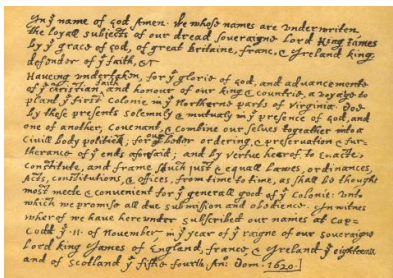 In yᵉ name of god Amen. We whose names are underwriten,
the loyall subjects of our dread soveraigne Lord King James
by yᵉ grace of god, of great Britaine, franc, & Ireland king,
defender of yᵉ faith, &c
Haveing undertaken, for yᵉ glorie of god, and advancemente
of yᵉ christian faith and honour of our king & countrie, a voyage to
plant yᵉ first colonie in yᵉ Northerne parts of Virginia. Doe
by these presents solemnly & mutualy in yᵉ presence of god, and
one of another, covenant, & combine our selves togeather into a
Civill body politick; for our better ordering, & preservation & fur-
therance of yᵉ ends aforesaid; and by vertue hearof, to enacte,
constitute, and frame shuch just & equall lawes, ordinances,
Acts, constitutions, & offices, from time to time, as shall be thought
most meete & convenient for yᵉ generall good of yᵉ colonie: unto
which we promise all due submission and obedience. In witnes
wherof we have hereunder subscribed our names at Cap-
Codd yᵉ ·11· of November, in yᵉ year of yᵉ raigne of our soveraigne
Lord king James of England, france, & Ireland yᵉ eighteenth
and of Scotland yᵉ fiftie fourth. Anº: Dom. 1620.]